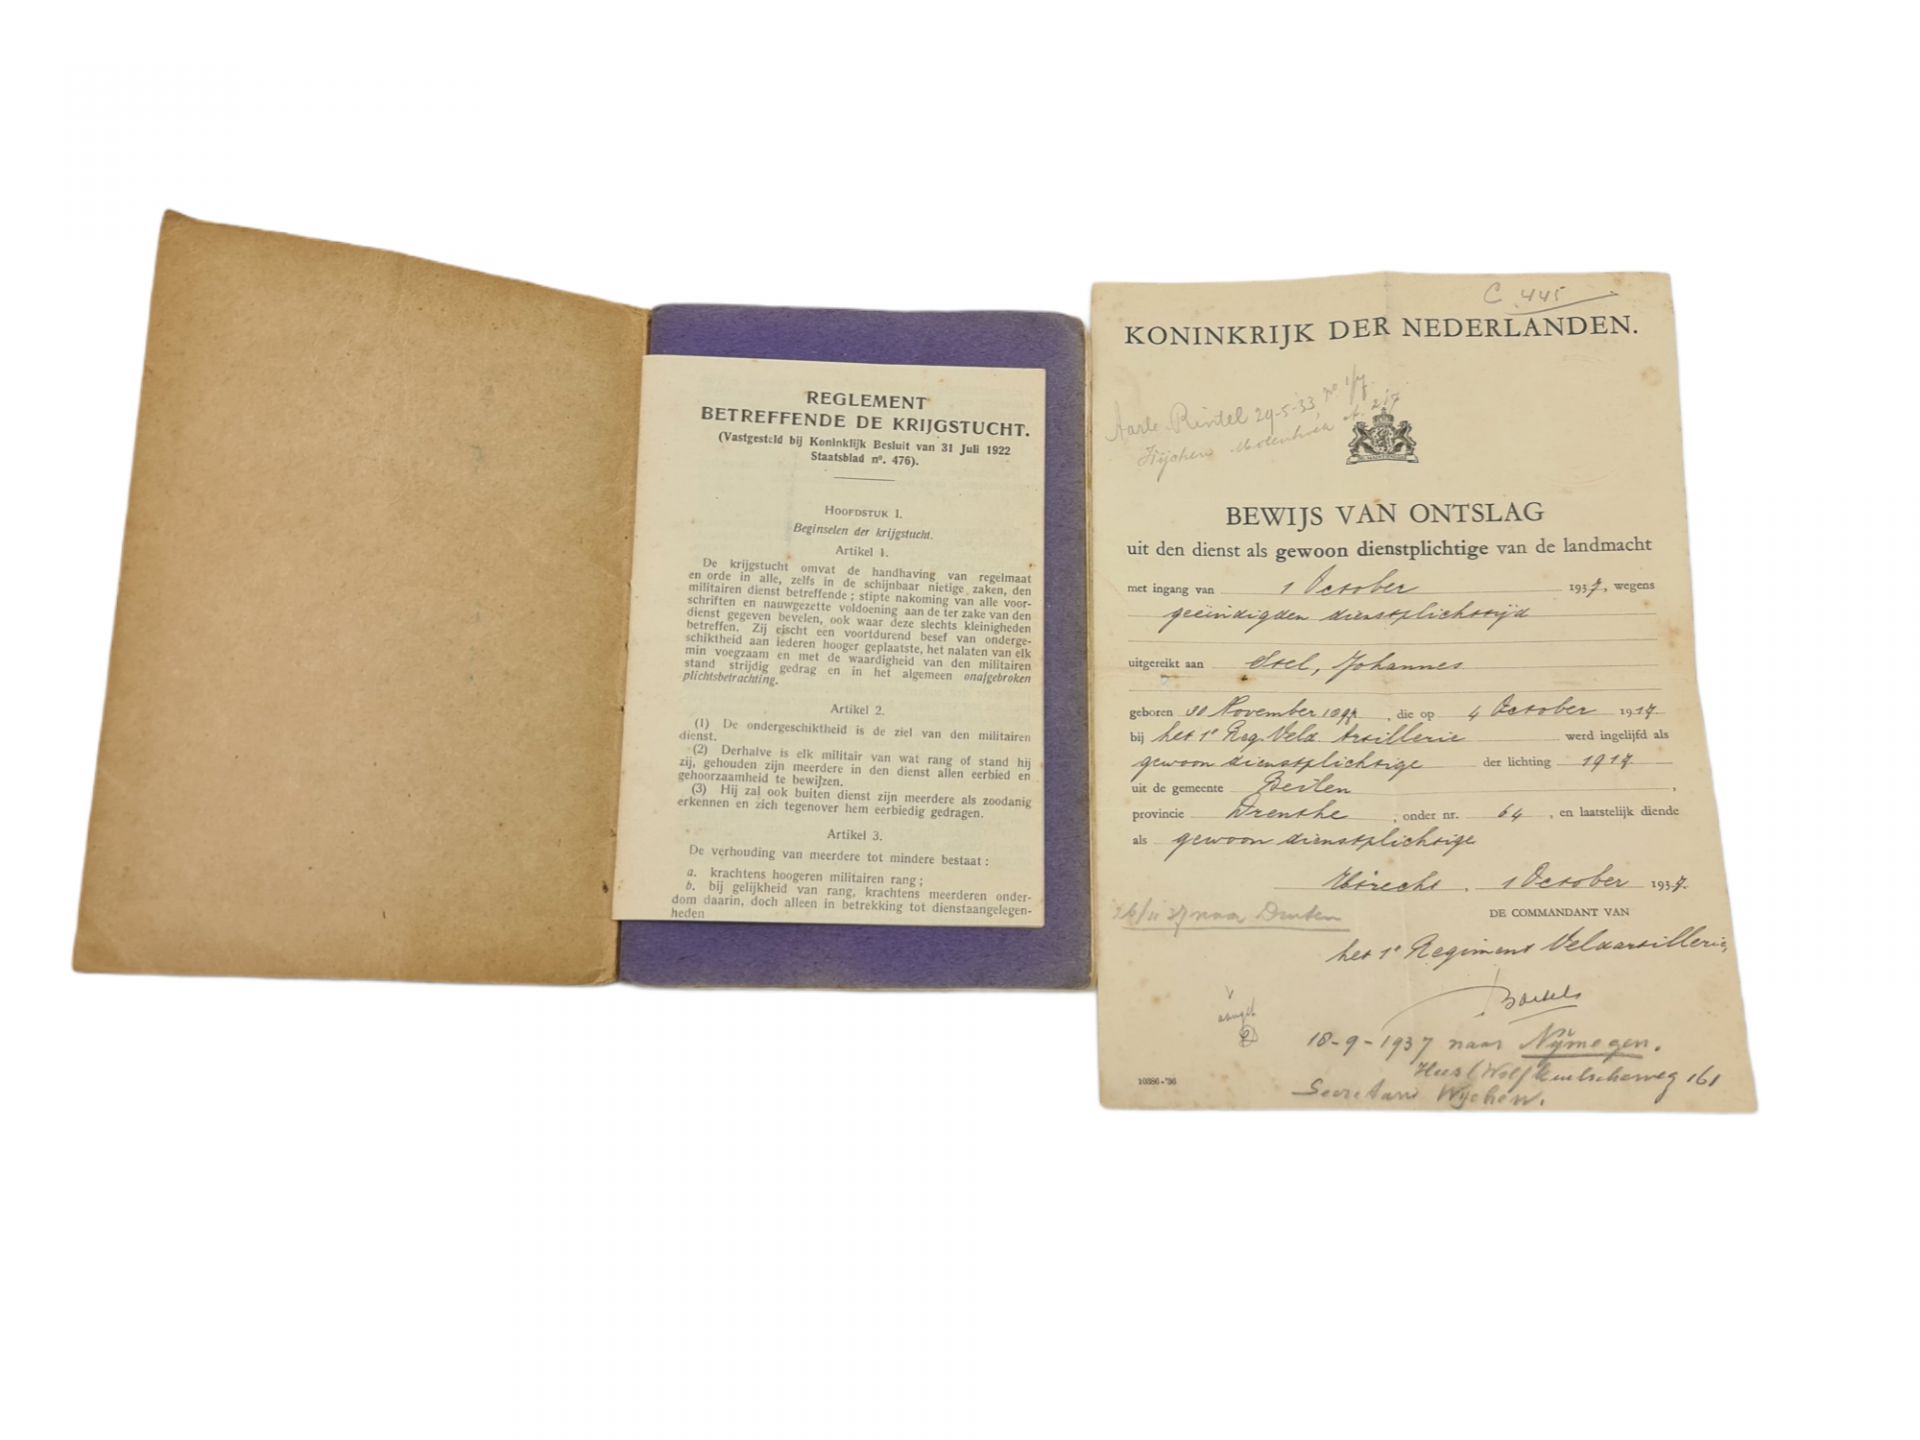 REGLEMENT
BETREFFENDE DE KRIJGSTUCHT.
(Vastgesteld bij Koninklijk Besluit van 31 Juli 1922
Staatsblad nº. 476).
HOOFDSTUK I.
Beginselen der krijgstucht.
Artikel 1.
De krijgstucht omvat de handhaving van regelmaat
en orde in alle, zelfs in de schijnbaar nietige zaken, den
militairen dienst betreffende ; stipte nakoming van alle voor-
schriften en nauwgezette voldoening aan de ter zake van den
dienst gegeven bevelen, ook waar deze slechts kleinigheden
betreffen. Zij eischt een voortdurend besef van onderge-
schiktheid aan iederen hooger geplaatste, het nalaten van elk
min voegzaam en met de waardigheid van den militairen
stand strijdig gedrag en in het algemeen onafgebroken
plichtsbetrachting.
Artikel 2.
(1) De ondergeschiktheid is de ziel van den militairen
dienst.
(2) Derhalve is elk militair van wat rang of stand hij
zij, gehouden zijn meerdere in den dienst allen eerbied en
gehoorzaamheid te bewijzen.
(3) Hij zal ook buiten dienst zijn meerdere als zoodanig
erkennen en zich tegenover hem eerbiedig gedragen.
Artikel 3.
De verhouding van meerdere tot mindere bestaat :
a. krachtens hoogeren militairen rang ;
b. bij gelijkheid van rang, krachtens meerderen onder-
dom daarin, doch alleen in betrekking tot dienstaangelegen-
heden
C 445
KONINKRIJK DER NEDERLANDEN.
Aarle Rixtel 29-5-33, no 1/7
Wijchen A. 217
BEWIJS VAN ONTSLAG
uit den dienst als gewoon dienstplichtige van de landmacht
met ingang van 1 October 1937, wegens
geëindigden diensplichttijd
uitgereikt aan Stel, Johannes
geboren 30 November 1897, die op 4 October 1917
bij het 1e Reg. Veld. Artillerie werd ingelijfd als
gewoon dienstplichtige der lichting 1917
uit de gemeente Beilen,
provincie Drenthe, onder nr. 64, en laatstelijk diende
als gewoon dienstplichtige
Utrecht, 1 October 1937.
26/11 37 naar Druten
DE COMMANDANT VAN
het 1e Regiment Veldartillerie,
18-9-1937 naar Nijmegen.
Hees 161
Secretarie Wijchen.
10386-'36